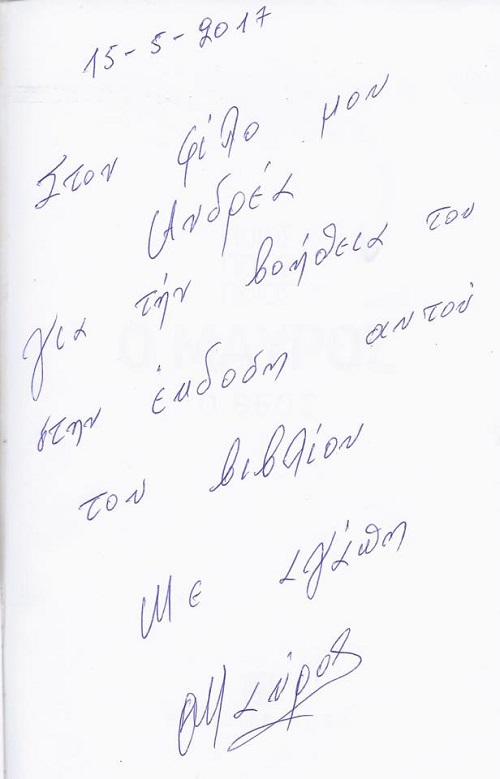 15-5-2017
Στον φίλο μου
Ανδρέα
για τήν βοήθεια του
στην έκδοση αυτού
του βιβλίου
Με αγάπη
Ο Μαύρος
Ο ΜΑΥΡΟΣ